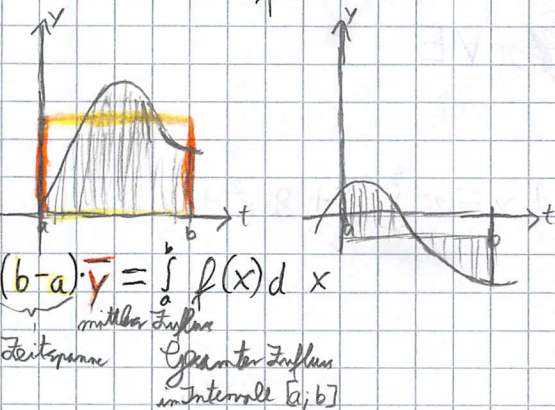 y y
t t
a b a b
(b-a)·y̅ = ∫ₐᵇ f(x) d x
mittlerer Zufluss
Zeitspanne Gesamter Zufluss
im Intervall [a;b]